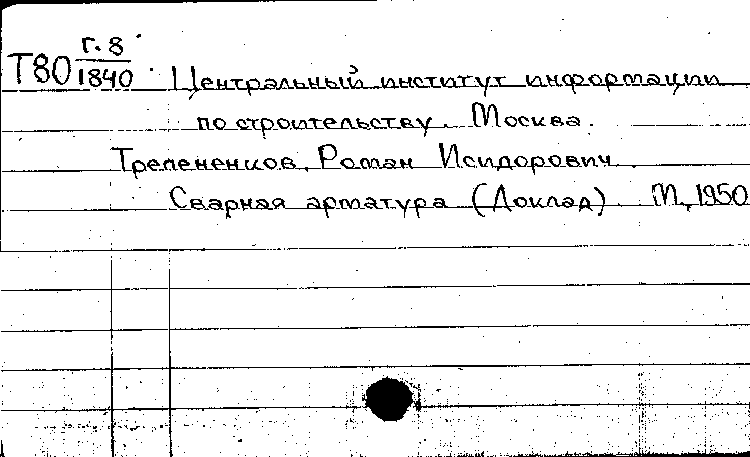 Т80 г.8/1840 Центральный институт информации
по строительству. Москва.
Трепененков, Роман Исидорович.
Сварная арматура (Доклад) М, 1950